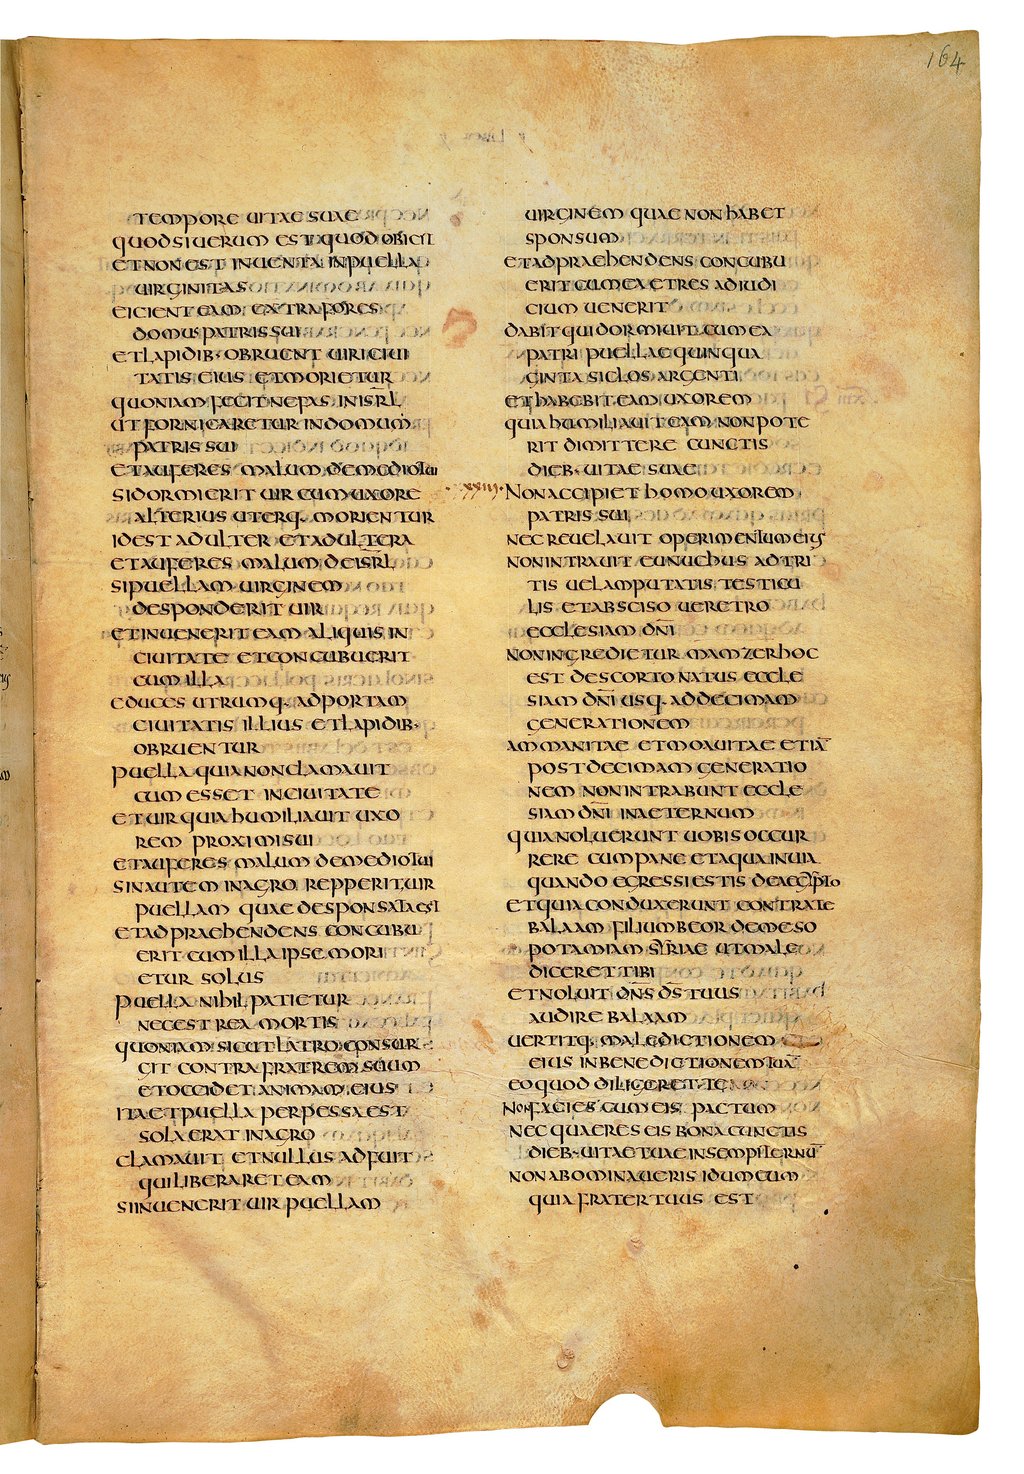 164
TEMPORE UITAE SUAE
QUODSIUERUM EST QUOD OBICIT
ET NON EST INUENTA IN PUELLA
UIRGINITAS
EICIENT EAM EXTRA FORES
DOMUS PATRIS SUI
ET LAPIDIB· OBRUENT UIRI CIUI
TATIS EIUS ET MORIETUR
QUONIAM FECIT NEFAS IN ISRL
UT FORNICARETUR IN DOMUM
PATRIS SUI
ET AUFERES MALUM DE MEDIO TUI
SI DORMIERIT UIR CUM UXORE
ALTERIUS UTERQ· MORIENTUR
ID EST ADULTER ET ADULTERA
ET AUFERES MALUM DE ISRL
SI PUELLAM UIRGINEM
DESPONDERIT UIR
ET INUENERIT EAM ALIQUIS IN
CIUITATE ET CONCUBUERIT
CUM ILLA
EDUCES UTRUMQ· AD PORTAM
CIUITATIS ILLIUS ET LAPIDIB·
OBRUENTUR
PUELLA QUIA NON CLAMAUIT
CUM ESSET IN CIUITATE
ET UIR QUIA HUMILIAUIT UXO
REM PROXIMI SUI
ET AUFERES MALUM DE MEDIO TUI
SIN AUTEM IN AGRO REPPERIT UIR
PUELLAM QUAE DESPONSATA EST
ET ADPRAEHENDENS CONCUBU
ERIT CUM ILLA IPSE MORI
ETUR SOLUS
PUELLA NIHIL PATIETUR
NEC EST REA MORTIS
QUONIAM SICUT LATRO CONSUR
GIT CONTRA FRATREM SUUM
ET OCCIDET ANIMAM EIUS
ITA ET PUELLA PERPESSA EST
SOLA ERAT IN AGRO
CLAMAUIT ET NULLUS ADFUIT
QUI LIBERARET EAM
SI INUENERIT UIR PUELLAM
UIRGINEM QUAE NON HABET
SPONSUM
ET ADPRAEHENDENS CONCUBU
ERIT CUM EA ET RES AD IUDI
CIUM UENERIT
DABIT QUI DORMIUIT CUM EA
PATRI PUELLAE QUINQUA
GINTA SICLOS ARGENTI
ET HABEBIT EAM UXOREM
QUIA HUMILIAUIT EAM NON POTE
RIT DIMITTERE CUNCTIS
DIEB· UITAE SUAE
·XXIII· NON ACCIPIET HOMO UXOREM
PATRIS SUI
NEC REUELAUIT OPERIMENTUM EIUS
NON INTRAUIT EUNUCHUS ADTRI
TIS UEL AMPUTATIS TESTICU
LIS ET ABSCISO UERETRO
ECCLESIAM DNI
NON INGREDIETUR MAMZER HOC
EST DE SCORTO NATUS ECCLE
SIAM DNI USQ· AD DECIMAM
GENERATIONEM
AMMANITAE ET MOAUITAE ETIA
POST DECIMAM GENERATIO
NEM NON INTRABUNT ECCLE
SIAM DNI IN AETERNUM
QUIA NOLUERUNT UOBIS OCCUR
RERE CUM PANE ET AQUA IN UIA
QUANDO EGRESSI ESTIS DE AEGYPTO
ET QUIA CONDUXERUNT CONTRA TE
BALAAM FILIUM BEOR DE MESO
POTAMIAM SYRIAE UT MALE
DICERET TIBI
ET NOLUIT DNS DS TUUS
AUDIRE BALAAM
UERTITQ· MALEDICTIONEM
EIUS IN BENEDICTIONEM TUA
EO QUOD DILIGERET TE
NON FACIES CUM EIS PACTUM
NEC QUAERES EIS BONA CUNCTIS
DIEB· UITAE TUAE IN SEMPITERNU
NON ABOMINAUERIS IDUMEUM
QUIA FRATER TUUS EST